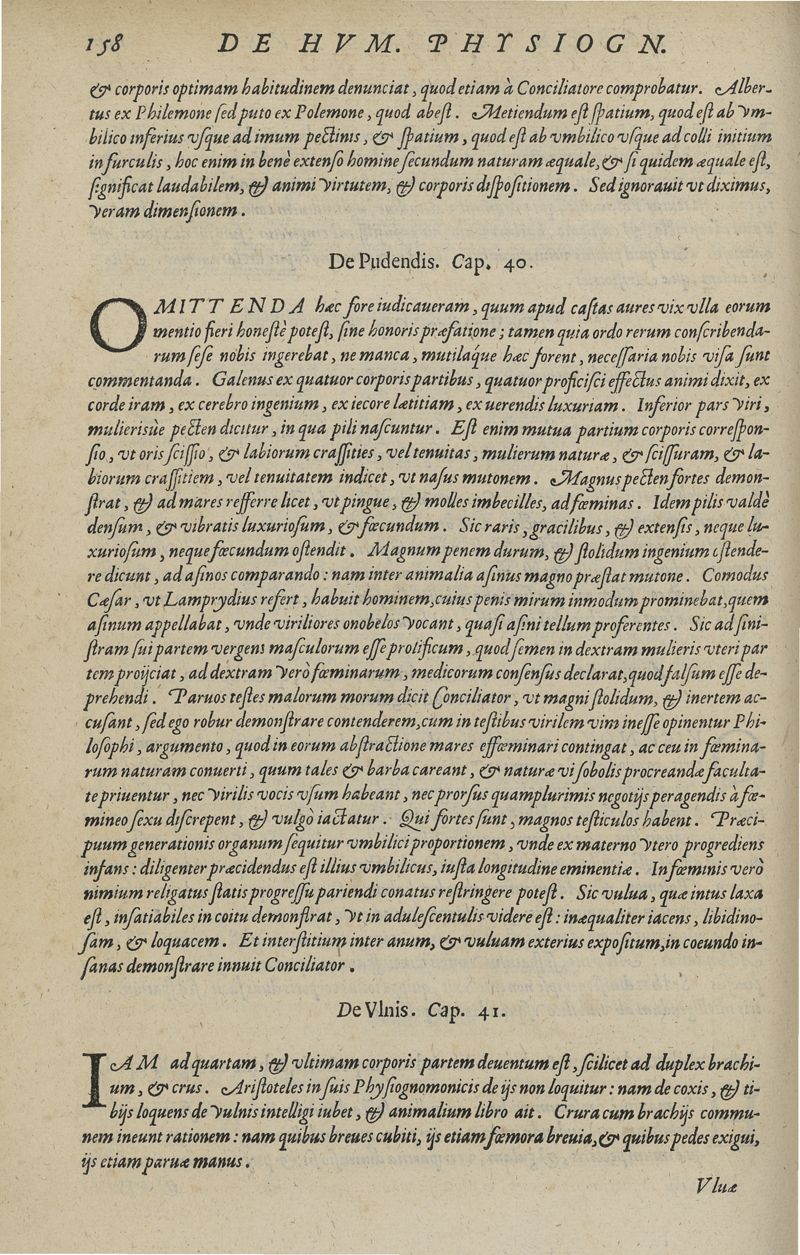 158 DE HVM. PHYSIOGN.
& corporis optimam habitudinem denunciat, quod etiam à Conciliatore comprobatur. Alber-
tus ex Philemone ſed puto ex Polemone, quod abeſt. Metiendum eſt ſpatium, quod eſt ab vm-
bilico inferius vſque ad imum pectinis, & ſpatium, quod eſt ab vmbilico vſque ad colli initium
in furculis, hoc enim in benè extenſo homine ſecundum naturam æquale, & ſi quidem æquale eſt,
ſignificat laudabilem, & animi virtutem, & corporis diſpoſitionem. Sed ignorauit vt diximus,
veram dimenſionem.
De Pudendis. Cap. 40.
OMITTENDA hæc fore iudicaueram, quum apud caſtas aures vix vlla eorum
mentio fieri honeſtè poteſt, ſine honoris præfatione; tamen quia ordo rerum conſcribenda-
rum ſeſe nobis ingerebat, ne manca, mutiláque hæc forent, neceſſaria nobis viſa ſunt
commentanda. Galenus ex quatuor corporis partibus, quatuor proficiſci effectus animi dixit, ex
corde iram, ex cerebro ingenium, ex iecore lætitiam, ex uerendis luxuriam. Inferior pars viri,
mulierisùe pecten dicitur, in qua pili naſcuntur. Eſt enim mutua partium corporis correſpon-
ſio, vt oris ſciſſio, & labiorum craſſities, vel tenuitas, mulierum naturæ, & ſciſſuram, & la-
biorum craſſitiem, vel tenuitatem indicet, vt naſus mutonem. Magnus pecten fortes demon-
ſtrat, & ad mares refferre licet, vt pingue, & molles imbecilles, ad fœminas. Idem pilis valdè
denſum, & vibratis luxurioſum, & fœcundum. Sic raris, gracilibus, & extenſis, neque lu-
xurioſum, neque fœcundum oſtendit. Magnum penem durum, & ſtolidum ingenium oſtende-
re dicunt, ad aſinos comparando: nam inter animalia aſinus magno præſtat mutone. Comodus
Cæſar, vt Lamprydius refert, habuit hominem, cuius penis mirum inmodum prominebat, quem
aſinum appellabat, vnde viriliores onobelos vocant, quaſi aſini tellum proferentes. Sic ad ſini-
ſtram ſui partem vergens maſculorum eſſe prolificum, quod ſemen in dextram mulieris vteri par
tem proijciat, ad dextram verò fœminarum, medicorum conſenſus declarat, quod falſum eſſe de-
prehendi. Paruos teſtes malorum morum dicit Conciliator, vt magni ſtolidum, & inertem ac-
cuſant, ſed ego robur demonſtrare contenderem, cum in teſtibus virilem vim ineſſe opinentur Phi-
loſophi, argumento, quod in eorum abſtractione mares effœminari contingat, ac ceu in fœmina-
rum naturam conuerti, quum tales & barba careant, & naturæ vi ſobolis procreandæ faculta-
te priuentur, nec virilis vocis vſum habeant, nec prorſus quamplurimis negotijs peragendis à fœ-
mineo ſexu diſcrepent, & vulgò iactatur. Qui fortes ſunt, magnos teſticulos habent. Præci-
puum generationis organum ſequitur vmbilici proportionem, vnde ex materno vtero progrediens
infans: diligenter præcidendus eſt illius vmbilicus, iuſta longitudine eminentiæ. In fœminis verò
nimium religatus ſtatis progreſſu pariendi conatus reſtringere poteſt. Sic vulua, quæ intus laxa
eſt, inſatiabiles in coitu demonſtrat, vt in aduleſcentulis videre eſt: inæqualiter iacens, libidino-
ſam, & loquacem. Et interſtitium inter anum, & vuluam exterius expoſitum, in coeundo in-
ſanas demonſtrare innuit Conciliator.
De Vlnis. Cap. 41.
IAM ad quartam, & vltimam corporis partem deuentum eſt, ſcilicet ad duplex brachi-
um, & crus. Ariſtoteles in ſuis Phyſiognomonicis de ijs non loquitur: nam de coxis, & ti-
bijs loquens de vulnis intelligi iubet, & animalium libro ait. Crura cum brachijs commu-
nem ineunt rationem: nam quibus breues cubiti, ijs etiam fœmora breuia, & quibus pedes exigui,
ijs etiam paruæ manus.
Vluæ